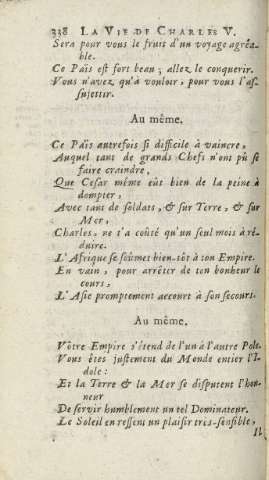 338 LA VIE DE CHARLES V.
Sera pour vous le fruit d'un voyage agréa-
ble.
Ce Païs est fort beau; allez le conquerir.
Vous n'avez qu'à vouloir, pour vous l'as-
sujettir.
Au même.
Ce Païs autrefois si difficile à vaincre,
Auquel tant de grands Chefs n'ont pû se
faire craindre,
Que Cesar même eût bien de la peine à
dompter,
Avec tant de soldats, & sur Terre, & sur
Mer,
Charles, ne t'a coûté qu'un seul mois à ré-
duire.
L'Afrique se soûmet bien-tôt à ton Empire.
En vain, pour arrêter de ton bonheur le
cours,
L'Asie promptement accourt à son secours.
Au même.
Vôtre Empire s'étend de l'un à l'autre Pole.
Vous êtes justement du Monde entier l'I-
dole:
Et la Terre & la Mer se disputent l'hon-
neur
De servir humblement un tel Dominateur.
Le Soleil en ressent un plaisir tres-sensible,
Il